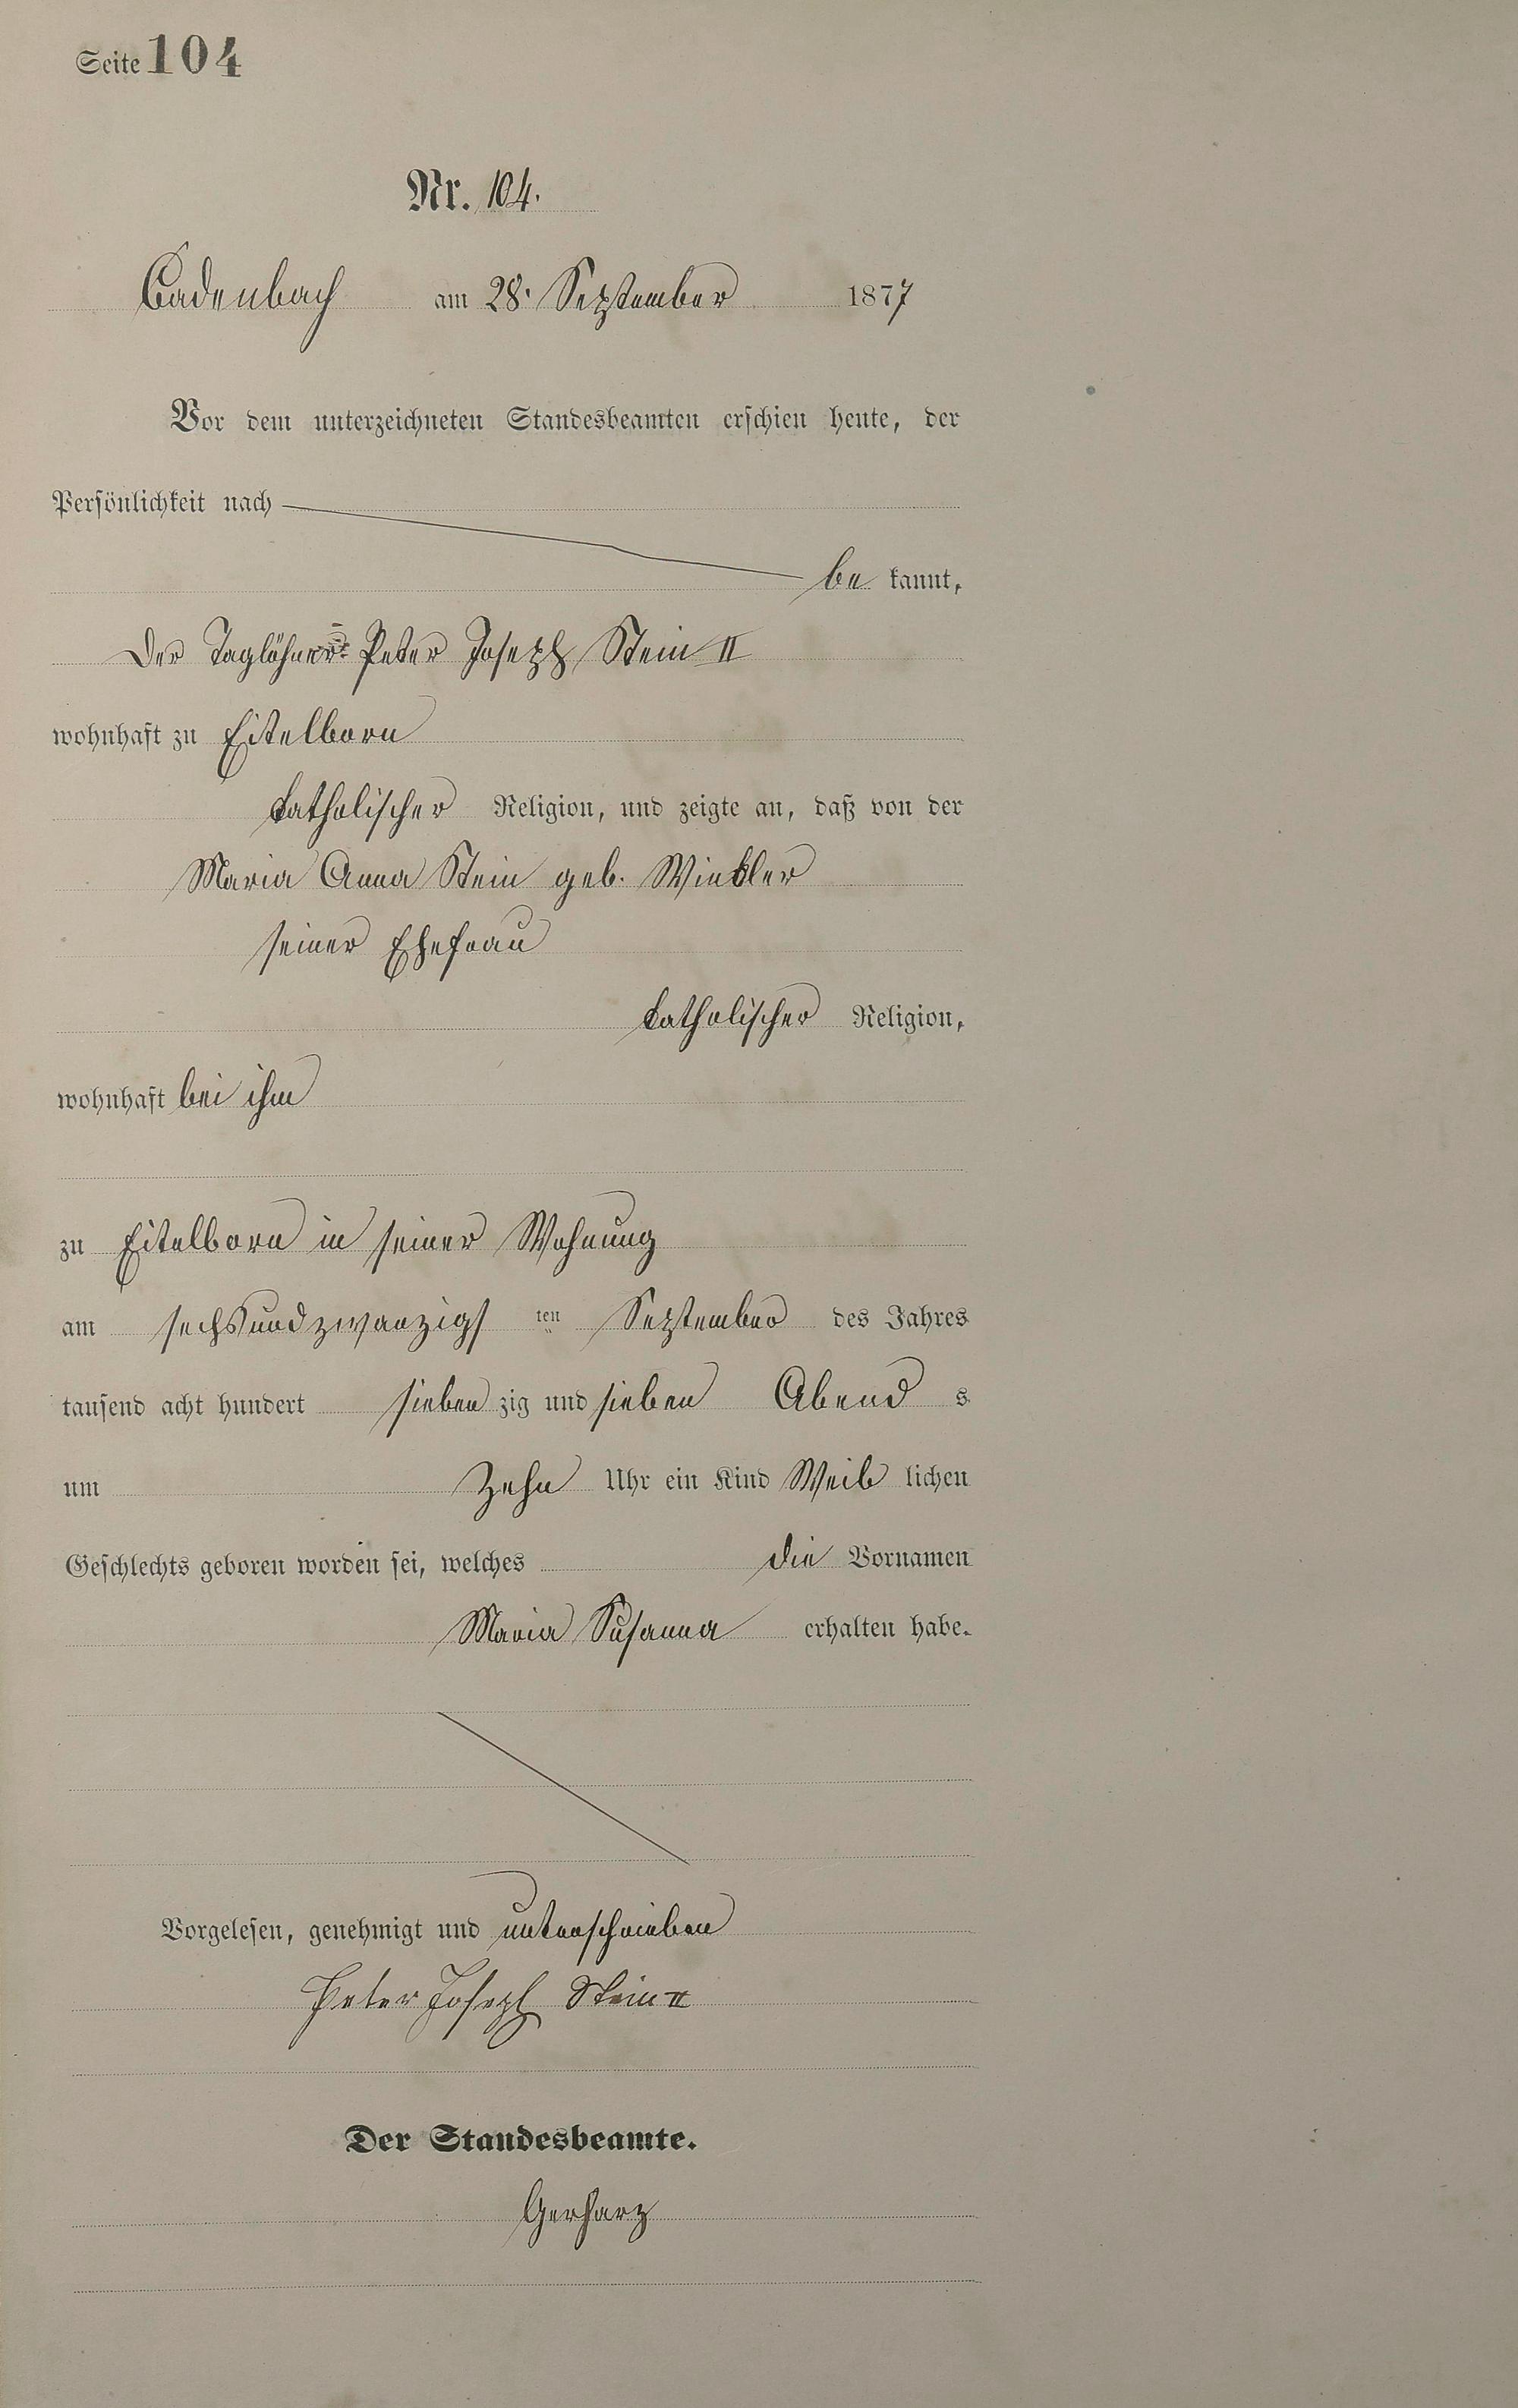 Seite 104
Nr. 104.
Cadenbach am 28. September 1877
Vor dem unterzeichneten Standesbeamten erschien heute, der
Persönlichkeit nach
be kannt,
Der Taglöhner Peter Joseph Stein II
wohnhaft zu Eitelborn
katholischer Religion, und zeigte an, daß von der
Maria Anna Stein geb. Winkler
seiner Ehefrau
katholischer Religion,
wohnhaft bei ihm
zu Eitelborn in seiner Wohnung
am sechsundzwanzigs ten September des Jahres
tausend acht hundert sieben zig und sieben Abend s
um Zehn Uhr ein Kind Weib lichen
Geschlechts geboren worden sei, welches die Vornamen
Maria Susanna erhalten habe.
Vorgelesen, genehmigt und unterschrieben
Peter Joseph Stein II
Der Standesbeamte.
Gerharz